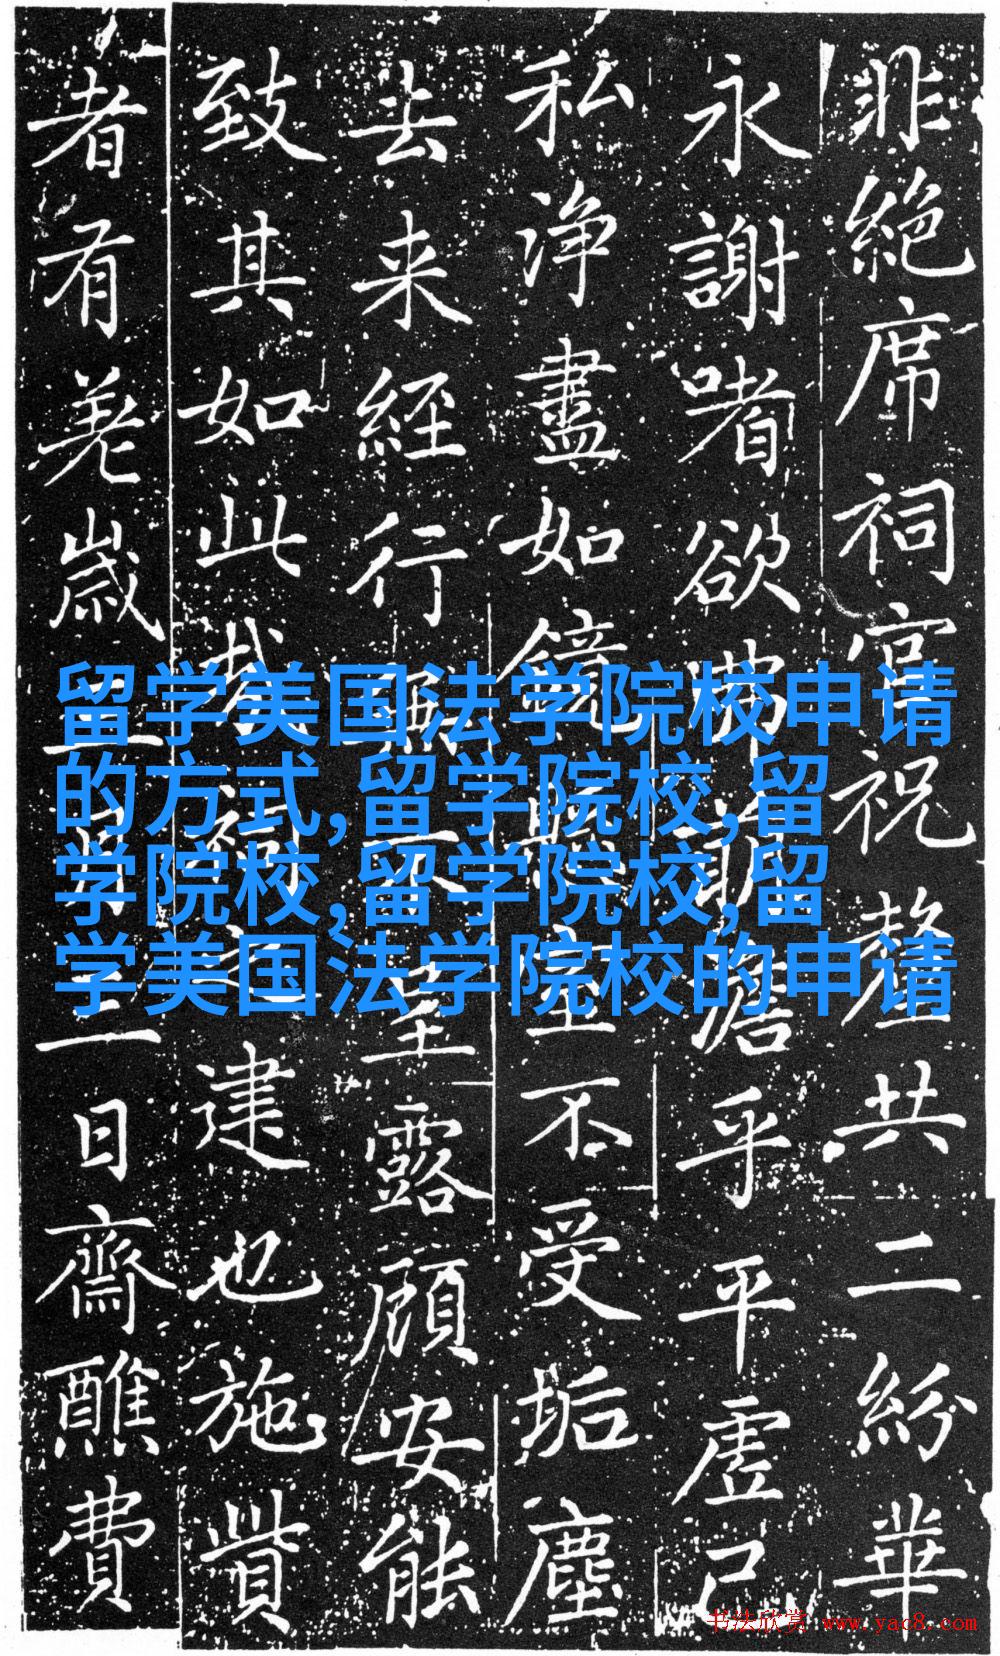 非絕席祠官祝釐共二紛華
永謝嗜欲澹乎平虛己
私淨盡如鏡不受垢塵
去来経行露顧安能
致其如此哉祠建也施貲
者有羗歲日齋醮費
留学美国法学院校申请
的方式,留学院校,留
学院校,留学院校,留
学美国法学院校的申请
书法欣赏 www.yac8.com